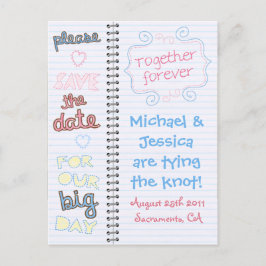 please
SAVE
the
date
FOR
OUR
big
DAY
Together
forever
Michael &
Jessica
are tying
the knot!
August 28th 2011
Sacramento, CA